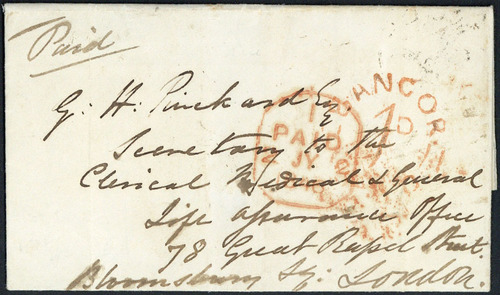 Paid
G: H: Pinckard Esq
Secretary to the
Clerical Medical & General
Life Assurance Office
78 Great Rusel Street.
Bloomsbury Sq: London.
BANGOR
1D
1
PAID
JY